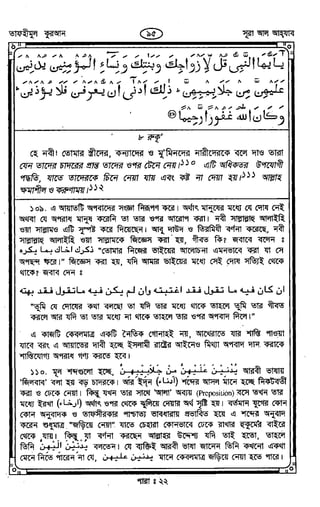 তাফহীমুল কুরআন
৯৫
সূরা আল আহযাব
يٰۤاَيُّهَا النَّبِىُّ قُلْ لِّاَزْوَاجِكَ وَبَنٰتِكَ وَنِسَآءِ الْمُؤْمِنِيْنَ يُدْنِيْنَ
عَلَيْهِنَّ مِنْ جَلَابِيْبِهِنَّ ؕ ذٰلِكَ اَدْنٰۤى اَنْ يُّعْرَفْنَ فَلَا يُؤْذَيْنَ ؕ
وَكَانَ اللّٰهُ غَفُوْرًا رَّحِيْمًا ۝
৮ রুকূ’
হে নবী! তোমার স্ত্রীদের, কন্যাদের ও মু’মিনদের নারীদেরকে বলে দাও তারা
যেন তাদের চাদরের প্রান্ত তাদের ওপর টেনে নেয়।১১০ এটি অধিকতর উপযোগী
পদ্ধতি, যাতে তাদেরকে চিনে নেয়া যায় এবং কষ্ট না দেয়া হয়।১১১ আল্লাহ
ক্ষমাশীল ও করুণাময়।১১২
১০৯. এ আয়াতটি অপবাদের সংজ্ঞা নিরূপণ করে। অর্থাৎ মানুষের মধ্যে যে দোষ নেই
অথবা যে অপরাধ মানুষ করেনি তা তার ওপর আরোপ করা। নবী সাল্লাল্লাহু আলাইহি
ওয়া সাল্লামও এটি সুস্পষ্ট করে দিয়েছেন। আবু দাউদ ও তিরমিযী বর্ণনা করেছে, নবী
সাল্লাল্লাহু আলাইহি ওয়া সাল্লামকে জিজ্ঞেস করা হয়, গীবত কি? জবাবে বলেন :
ذكرك اخاك بما يكره "তোমার নিজের ভাইয়ের আলোচনা এমনভাবে করা যা সে
অপছন্দ করে।" জিজ্ঞেস করা হয়, যদি আমার ভাইয়ের মধ্যে সেই দোষ সত্যিই থেকে
থাকে? জবাব দেন :
ان كان فيه ما تقول فقد اغتبته وان لم يكن فيه ما تقول فقد بهته
"তুমি যে দোষের কথা বলছো তা যদি তার মধ্যে থাকে তাহলে তুমি তার গীবত
করলে আর যদি তা তার মধ্যে না থাকে তাহলে তার ওপর অপবাদ দিলে।"
এ কাজটি কেবলমাত্র একটি নৈতিক গোনাহই নয়, আখেরাতে যার শাস্তি পাওয়া
যাবে বরং এ আয়াতের দাবী হচ্ছে ইসলামী রাষ্ট্রের আইনেও মিথ্যা অপবাদ দান করাকে
শাস্তিযোগ্য অপরাধ গণ্য করতে হবে।
১১০. মূল শব্দগুলো হচ্ছে, يدنين عليهن من جلابيبهن আরবী ভাষায়
‘জিলবাব’ বলা হয় বড় চাদরকে। আর ইদন (ادناء) শব্দের আসল মানে হচ্ছে নিকটবর্তী
করা ও ঢেকে নেয়া। কিন্তু যখন তার সাথে ‘আলা’ অব্যয় (Preposition) বসে তখন তার
মধ্যে ইরখা (ارخاء) অর্থাৎ ওপর থেকে ঝুলিয়ে দেয়ার অর্থ সৃষ্টি হয়। বর্তমান যুগের কোন
কোন অনুবাদক ও তাফসীরকার পাশ্চাত্য ভাবধারায় প্রভাবিত হয়ে এ শব্দের অনুবাদ
করেন শুধুমাত্র "জড়িয়ে নেয়া" যাতে চেহারা কোনভাবে ঢেকে রাখার হুকুমের বাইরে
থেকে যায়। কিন্তু যা বর্ণনা করছেন আল্লাহর উদ্দেশ্য যদি তাই হতো, তাহলে
তিনি يدنين اليهن বলতেন। যে ব্যক্তিই আরবী ভাষা জানেন তিনি কখনো একথা
মেনে নিতে পারেন না যে, يدنين عليهن মানে কেবলমাত্র জড়িয়ে নেয়া হতে পারে।
পারা : ২২